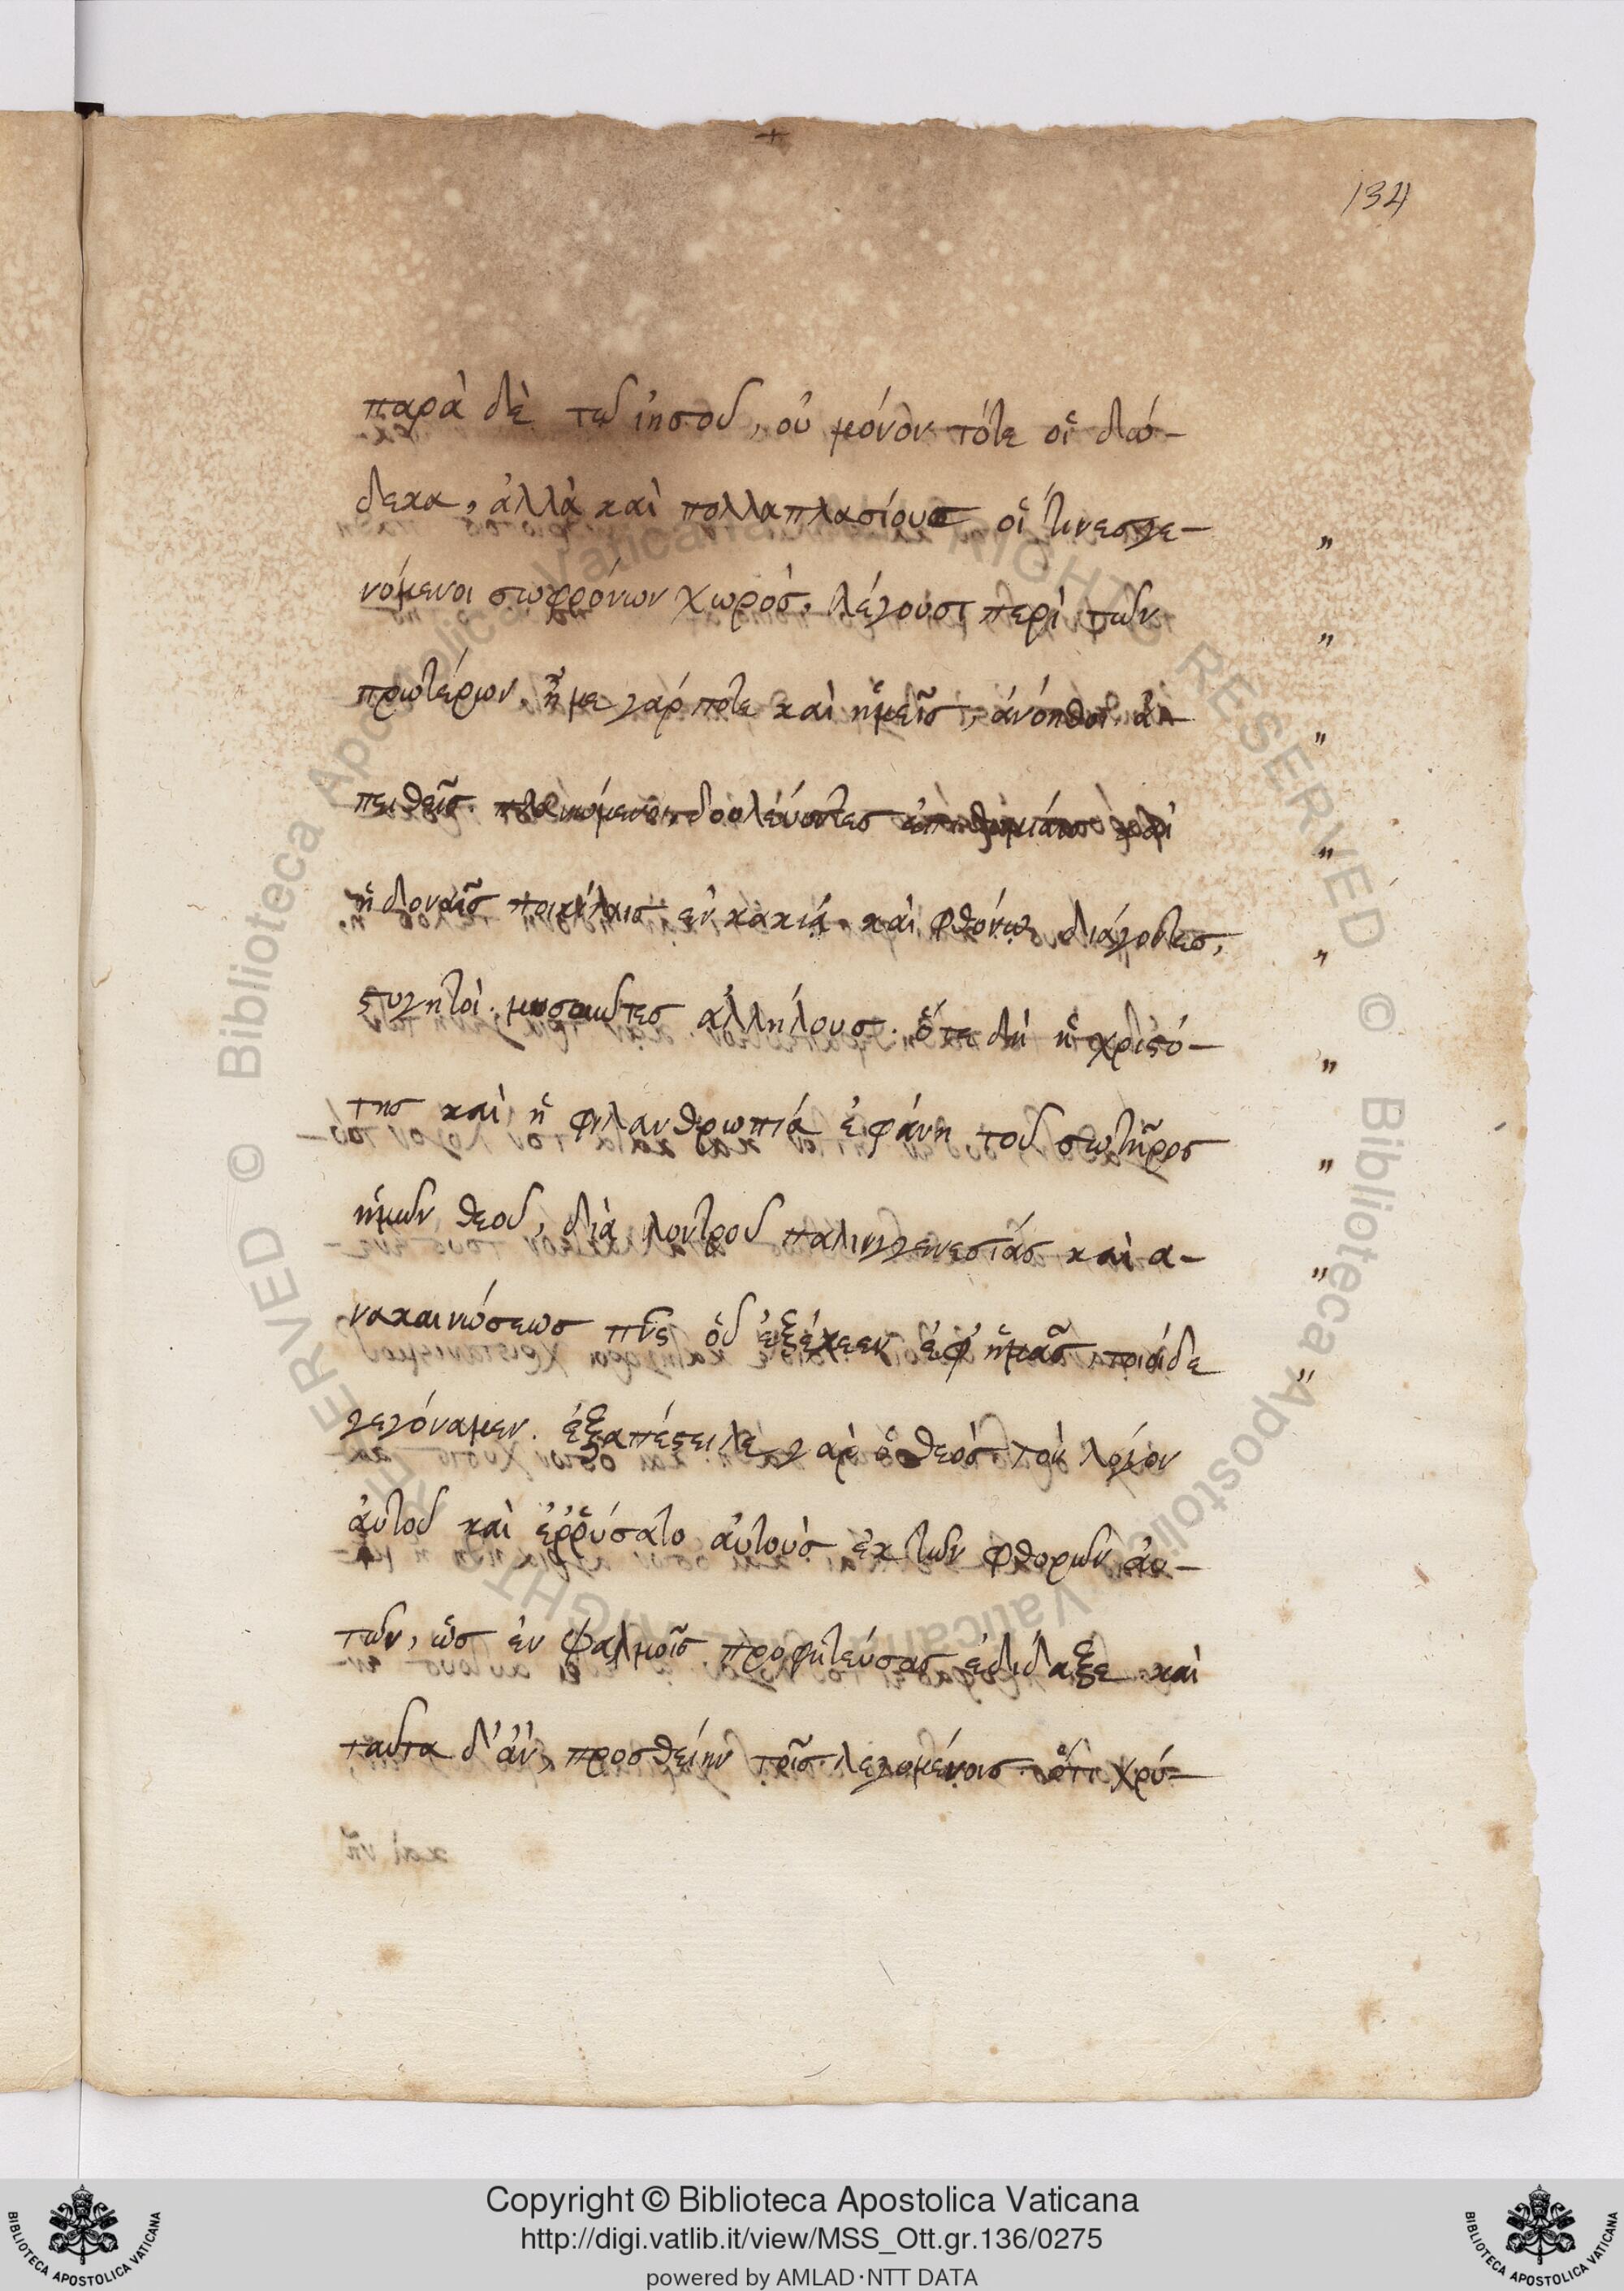 134
παρὰ δὲ τῶ ἰησοῦ, οὐ μόνον τότε οἱ δώ-
δεκα, ἀλλὰ καὶ πολλαπλασίους οἵ τινες γε-
νόμενοι σωφρόνων χωρὸς, λέγουσι περὶ τῶν
προτέρων. ἦμε γάρ ποτε καὶ ἡμεῖς, ἀνόητοι ἀ-
πειθεῖς. πλανώμενοι, δουλεύοντες ἐπιθυμίαις καὶ
ἡδοναῖς ποικίλαις ἐν κακίᾳ καὶ φθόνῳ διάγοντες,
στυγητοὶ. μισοῦντες ἀλλήλους. ὅτε δὴ ἡ χριστό-
της καὶ ἡ φιλανθρωπιά ἐφάνη τοῦ σωτῆρος
ἡμῶν θεοῦ, διὰ λουτροῦ παλιγγενεσιάς και α-
νακαινώσεως πνς οὗ ἐξέχεεν ἐφ' ἡμᾶς, ποιοίδε
γεγόναμεν. ἐξαπέστειλε γαρ ὁ θεὸς τὸν λόγον
ἀυτοῦ καὶ ἐρῥύσατο ἀυτοὺς ἐκ τῶν φθορῶν ἀυ-
τῶν, ὡς ἐν ψαλμοῖς προφητεύσας ἐδιδαξε. καὶ
ταῦτα δ' ἀν, προσθείην τοῖς λεγομένοις. ὅτι χρύ-
Copyright © Biblioteca Apostolica Vaticana
http://digi.vatlib.it/view/MSS_Ott.gr.136/0275
powered by AMLAD·NTT DATA
BIBLIOTECA APOSTOLICA VATICANA
BIBLIOTECA APOSTOLICA VATICANA